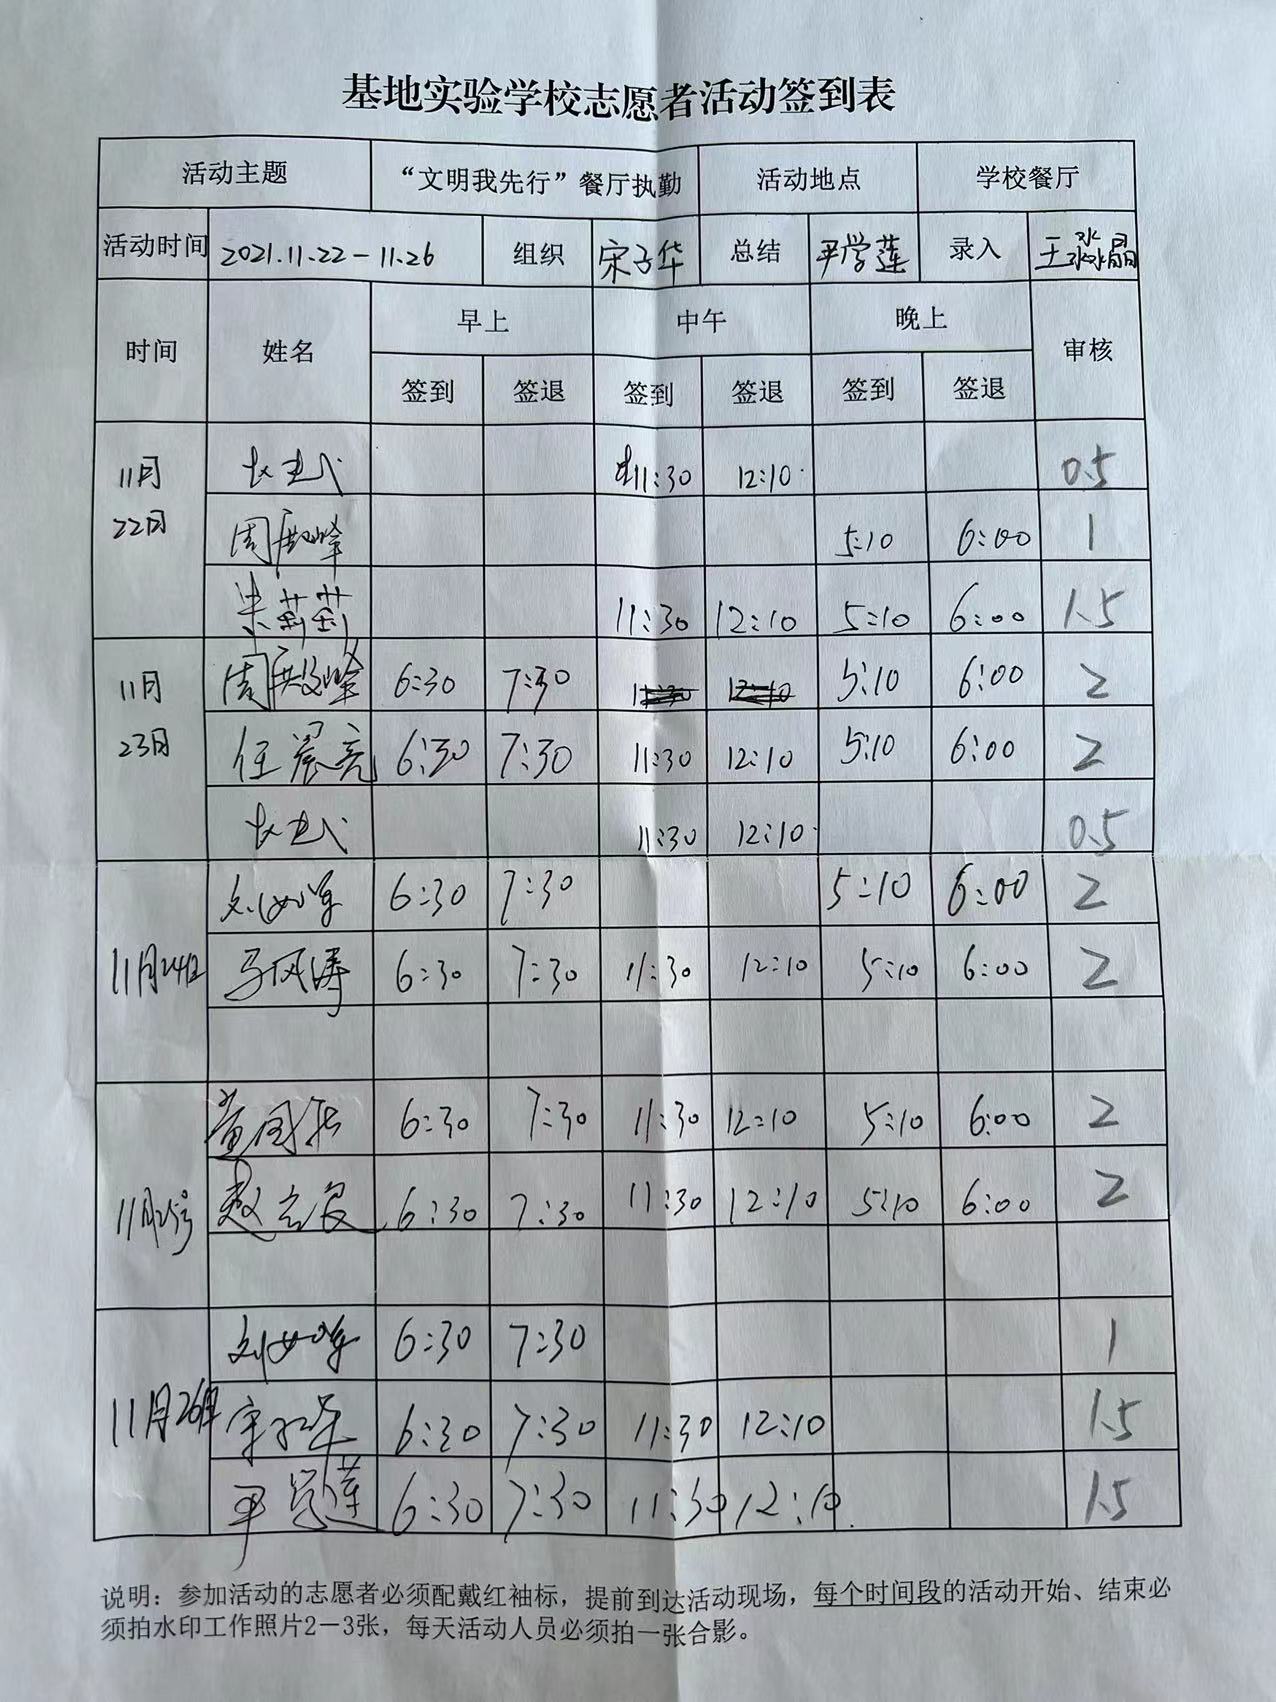 基地实验学校志愿者活动签到表
活动主题 “文明我先行”餐厅执勤 活动地点 学校餐厅
活动时间 2021.11.22－11.26 组织 宋子华 总结 平学莲 录入 王淼晶
时间 姓名 早上 中午 晚上 审核
签到 签退 签到 签退 签到 签退
11月22日 11:30 12:10 0.5
周殿峰 5:10 6:00 1
朱莉莉 11:30 12:10 5:10 6:00 1.5
11月23日 周殿峰 6:30 7:30 5:10 6:00 2
任晨亮 6:30 7:30 11:30 12:10 5:10 6:00 2
11:30 12:10 0.5
11月24日 6:30 7:30 5:10 6:00 2
马风涛 6:30 7:30 11:30 12:10 5:10 6:00 2
11月25号 6:30 7:30 11:30 12:10 5:10 6:00 2
赵立良 6:30 7:30 11:30 12:10 5:10 6:00 2
11月26日 6:30 7:30 1
宋子华 6:30 7:30 11:30 12:10 1.5
平学莲 6:30 7:30 11:30 12:10 1.5
说明：参加活动的志愿者必须配戴红袖标，提前到达活动现场，每个时间段的活动开始、结束必
须拍水印工作照片2－3张，每天活动人员必须拍一张合影。